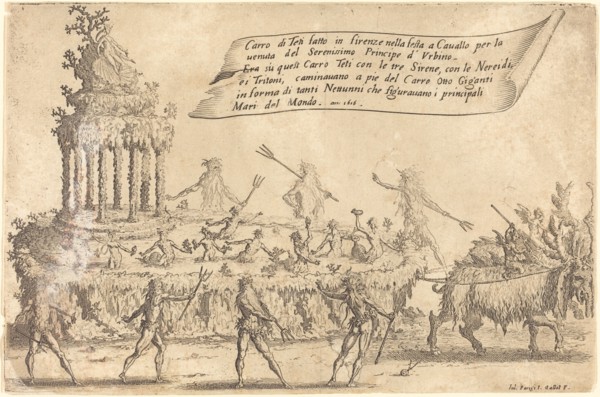 Carro di Teti fatto in firenze nella festa a Cavallo per la
venuta del Serenissimo Principe d'Vrbino.
Era sù quest Carro Teti con le tre Sirene, con le Nereidi,
e i Tritoni, caminauano a pie del Carro Otto Giganti
in forma di tanti Nettunni che figurauano i principali
Mari del Mondo. 1616.
Iul. Parigi I. Callot F.